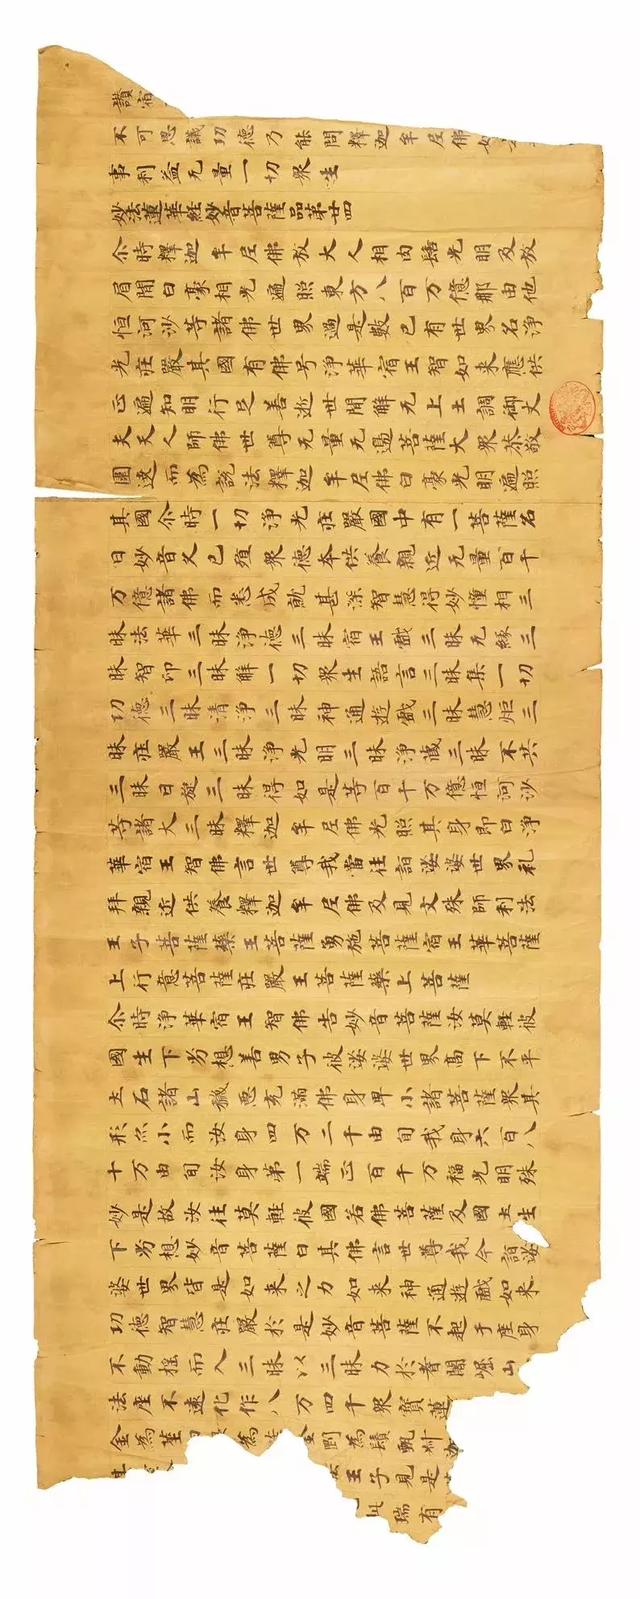 讃宿
不可思議功德乃能問釋迦牟尼佛
事利益无量一切衆生
妙法蓮華経妙音菩薩品苐廿四
尒時釋迦牟尼佛放大人相肉髻光明及放
眉間白豪相光遍照東方八百万億那由他
恒河沙等諸佛世界過是數已有世界名淨
光莊嚴其國有佛号淨華宿王智如来應供
正遍知明行足善逝世間解无上士調御丈
夫天人師佛世尊无量无邊菩薩大衆恭敬
圍遶而為說法釋迦牟尼佛白豪光明遍照
其國尒時一切淨光莊嚴國中有一菩薩名
曰妙音久已殖衆德本供養親近无量百千
万億諸佛而悉成就甚深智慧得妙憧相三
昧法華三昧淨德三昧宿王戲三昧无緣三
昧智印三昧解一切衆生語言三昧集一切
功德三昧清淨三昧神通遊戲三昧慧炬三
昧莊嚴王三昧淨光明三昧淨藏三昧不共
三昧日旋三昧得如是等百千万億恒河沙
等諸大三昧釋迦牟尼佛光照其身即白淨
華宿王智佛言世尊我當往詣娑婆世界礼
拜親近供養釋迦牟尼佛及見文殊師利法
王子菩薩藥王菩薩勇施菩薩宿王華菩薩
上行意菩薩莊嚴王菩薩藥上菩薩
尒時淨華宿王智佛告妙音菩薩汝莫輕彼
國生下劣想善男子彼娑婆世界高下不平
土石諸山穢惡充滿佛身卑小諸菩薩衆其
形亦小而汝身四万二千由旬我身六百八
十万由旬汝身苐一端正百千万福光明殊
妙是故汝往莫輕彼國若佛菩薩及國土生
下劣想妙音菩薩白其佛言世尊我今詣娑
婆世界皆是如来之力如来神通遊戲如来
功德智慧莊嚴於是妙音菩薩不起于座身
不動摇而入三昧以三昧力於耆闍崛山
法座不遠化作八万四千衆寶蓮
金為莖 為 剛為鬚甄
王子見是
瑞有